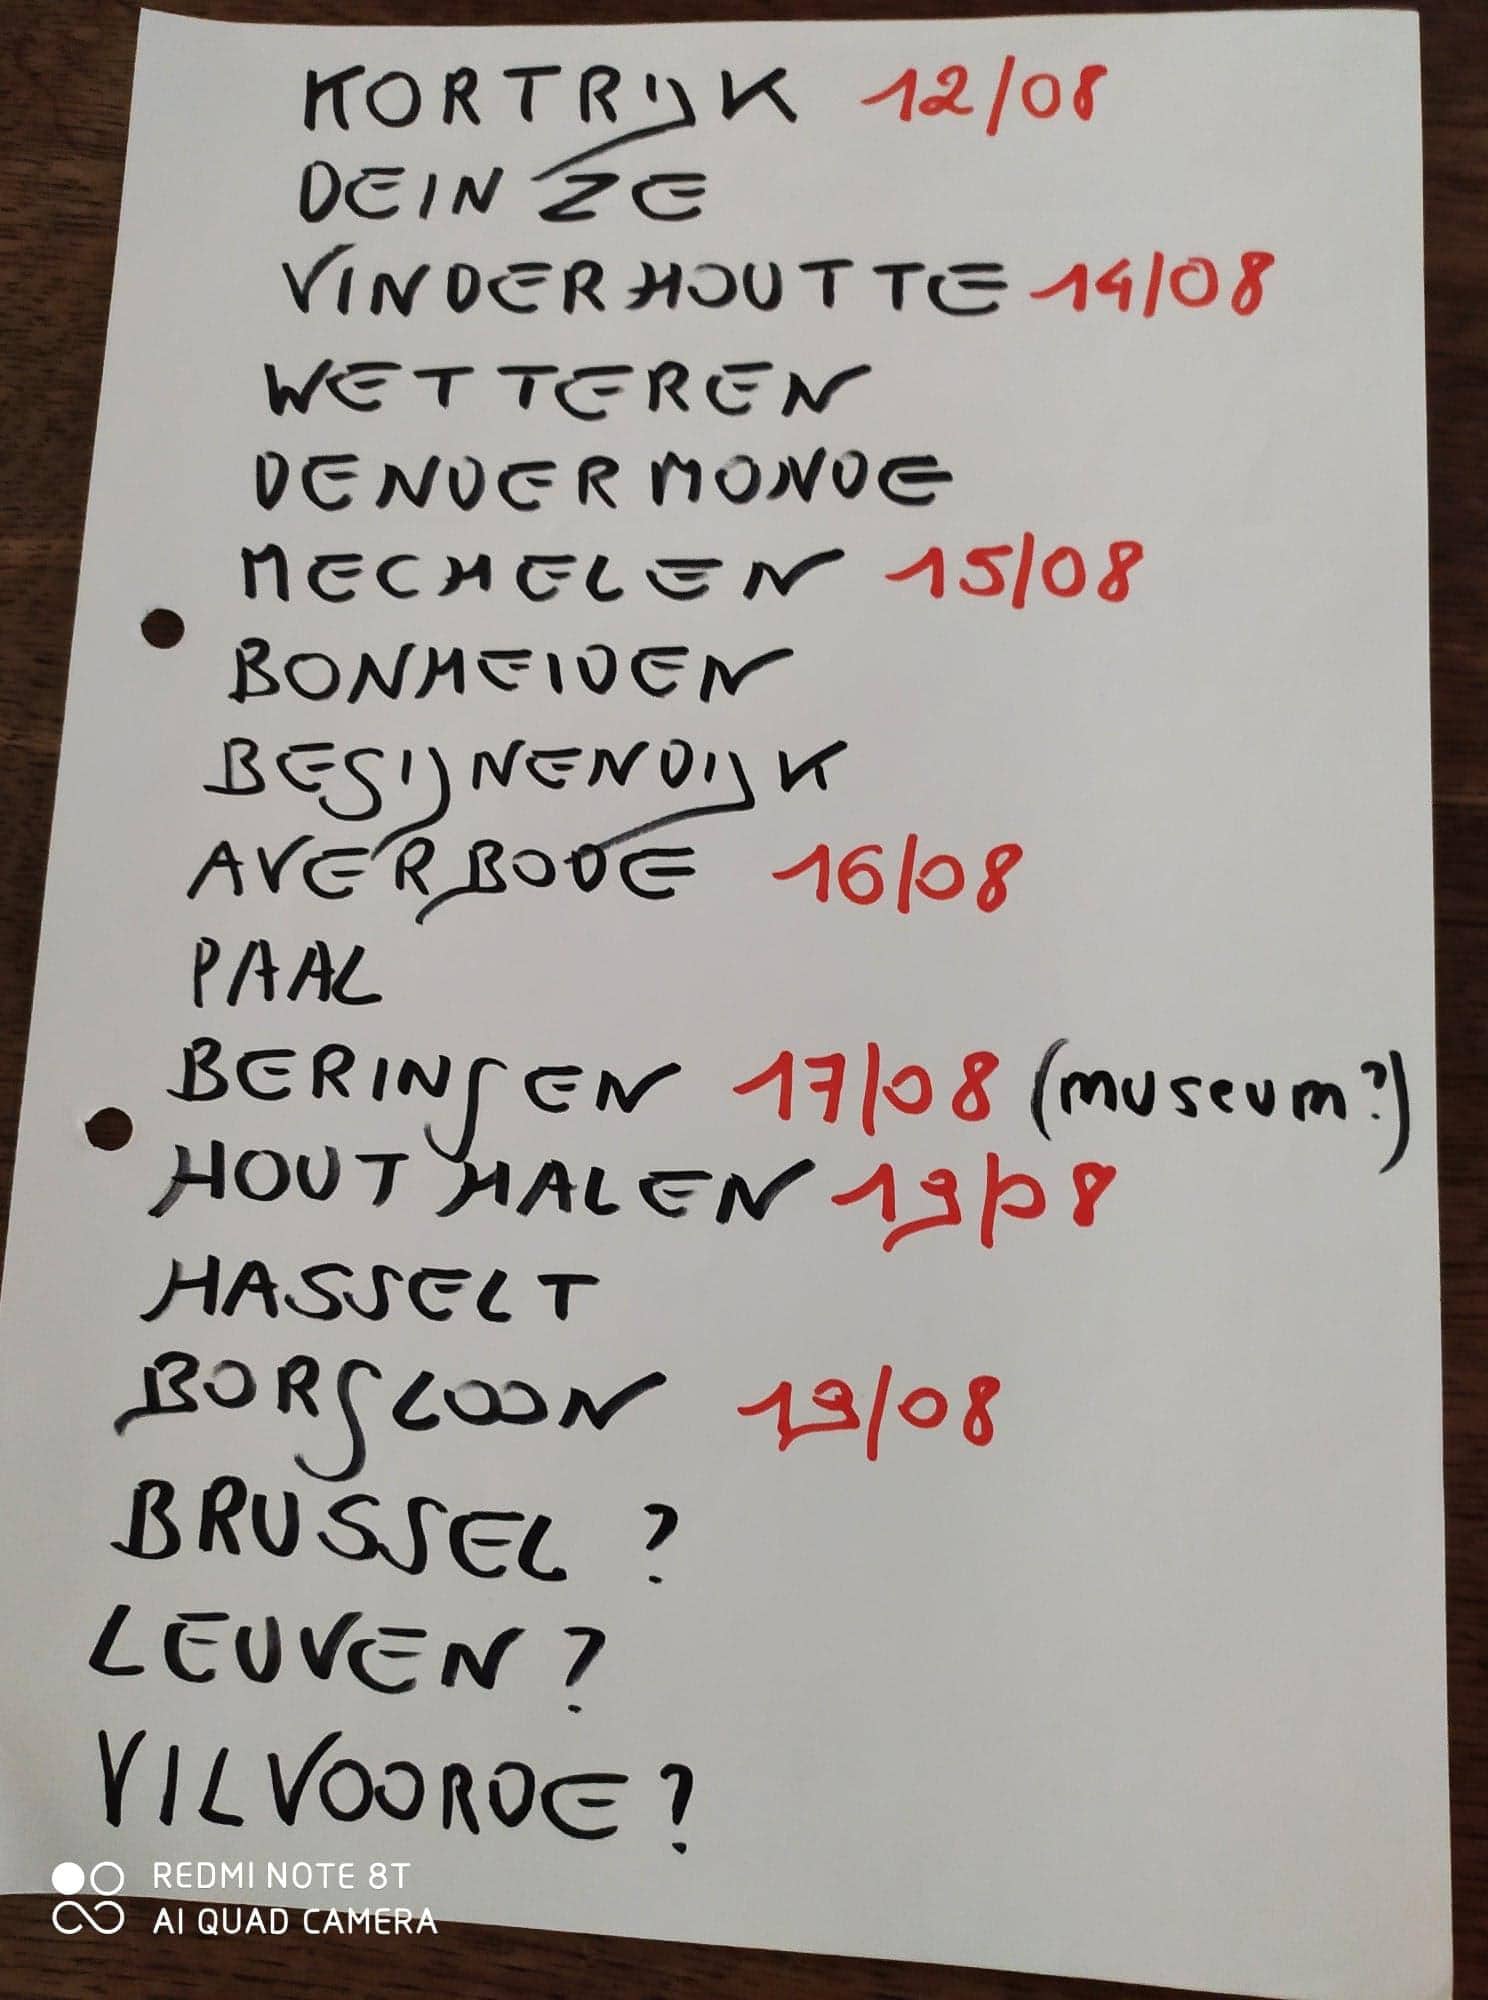 KORTRIJK 12/08
DEINZE
VINDERHOUTTE 14/08
WETTEREN
DENDERMONDE
MECHELEN 15/08
BONHEIDEN
BEGIJNENDIJK
AVERBODE 16/08
PAAL
BERINGEN 17/08 (museum?)
HOUTHALEN 19/08
HASSELT
BORGLOON 19/08
BRUSSEL ?
LEUVEN ?
VILVOORDE ?
REDMI NOTE 8T
AI QUAD CAMERA